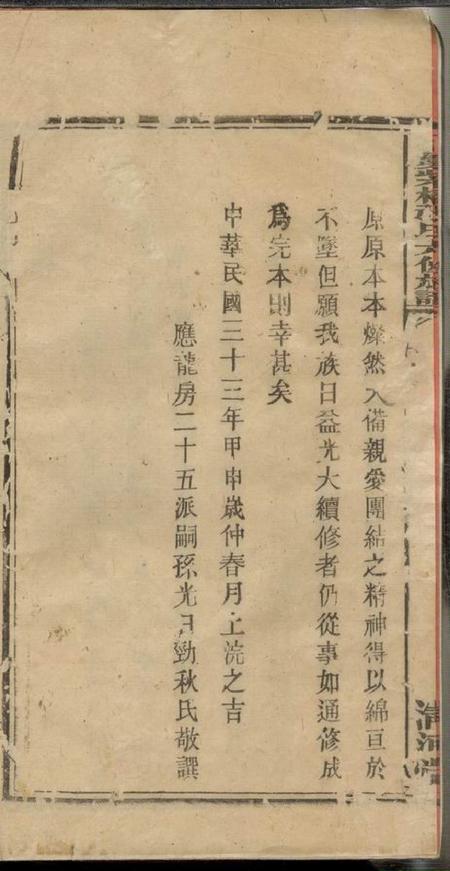 原原本本燦然大備親愛團結之精神得以綿亘於
不墜但願我族日益光大續修者仍從事如通修成
為完本則幸甚矣
中華民國三十三年甲申歲仲春月上浣之吉
應龍房二十五派嗣孫光日勁秋氏敬譔
清河堂